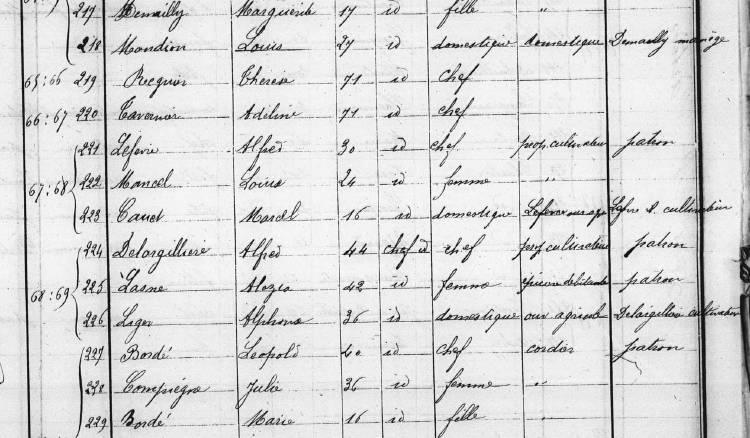 217 Demailly Marguerite 17 id fille "
218 Mondion Louis 27 id domestique domestique Demailly
65:66 219 Requier Therese 71 id chef
66:67 220 Tavernier Adeline 71 id chef
221 Lefevre Alfred 30 id chef prop. cultivateur patron
67:68 222 Mancel Louise 24 id femme "
223 Cauet Marcel 16 id domestique Lefevre cultivateur
224 Delargilliere Alfred 44 chef id chef prop cultivateur patron
68:69 225 Lasne Alezia 42 id femme patron
226 Leger Alphonse 36 id domestique ouv agricole Delargilliere cultivateur
227 Bordé Leopold 40 id chef cordier patron
228 Compiègne Julie 36 id femme "
229 Bordé Marie 16 id fille "